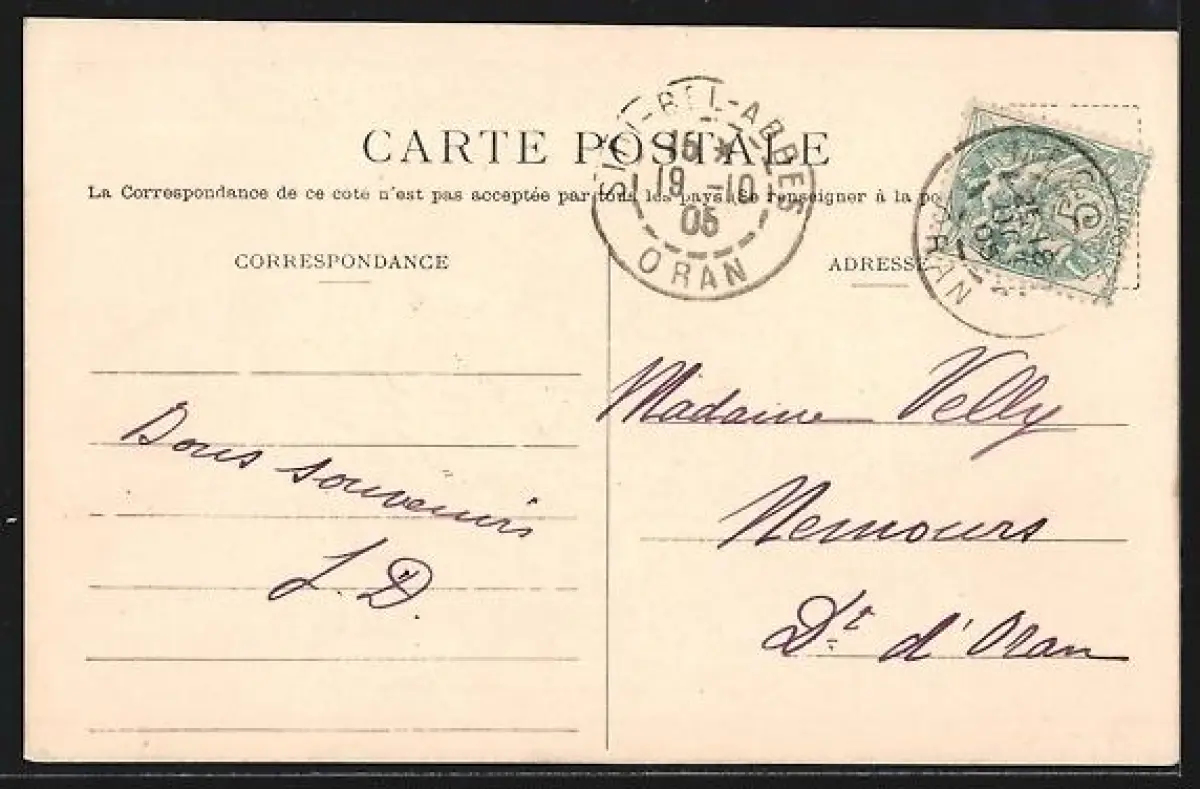 CARTE POSTALE
La Correspondance de ce coté n'est pas acceptée par tous les pays (Se renseigner à la po
CORRESPONDANCE
ADRESSE
SIDI-BEL-ABBES
15 *
19 -10
05
ORAN
Bons souvenirs
L. D.
Madame Velly
Nemours
Dt. d'Oran